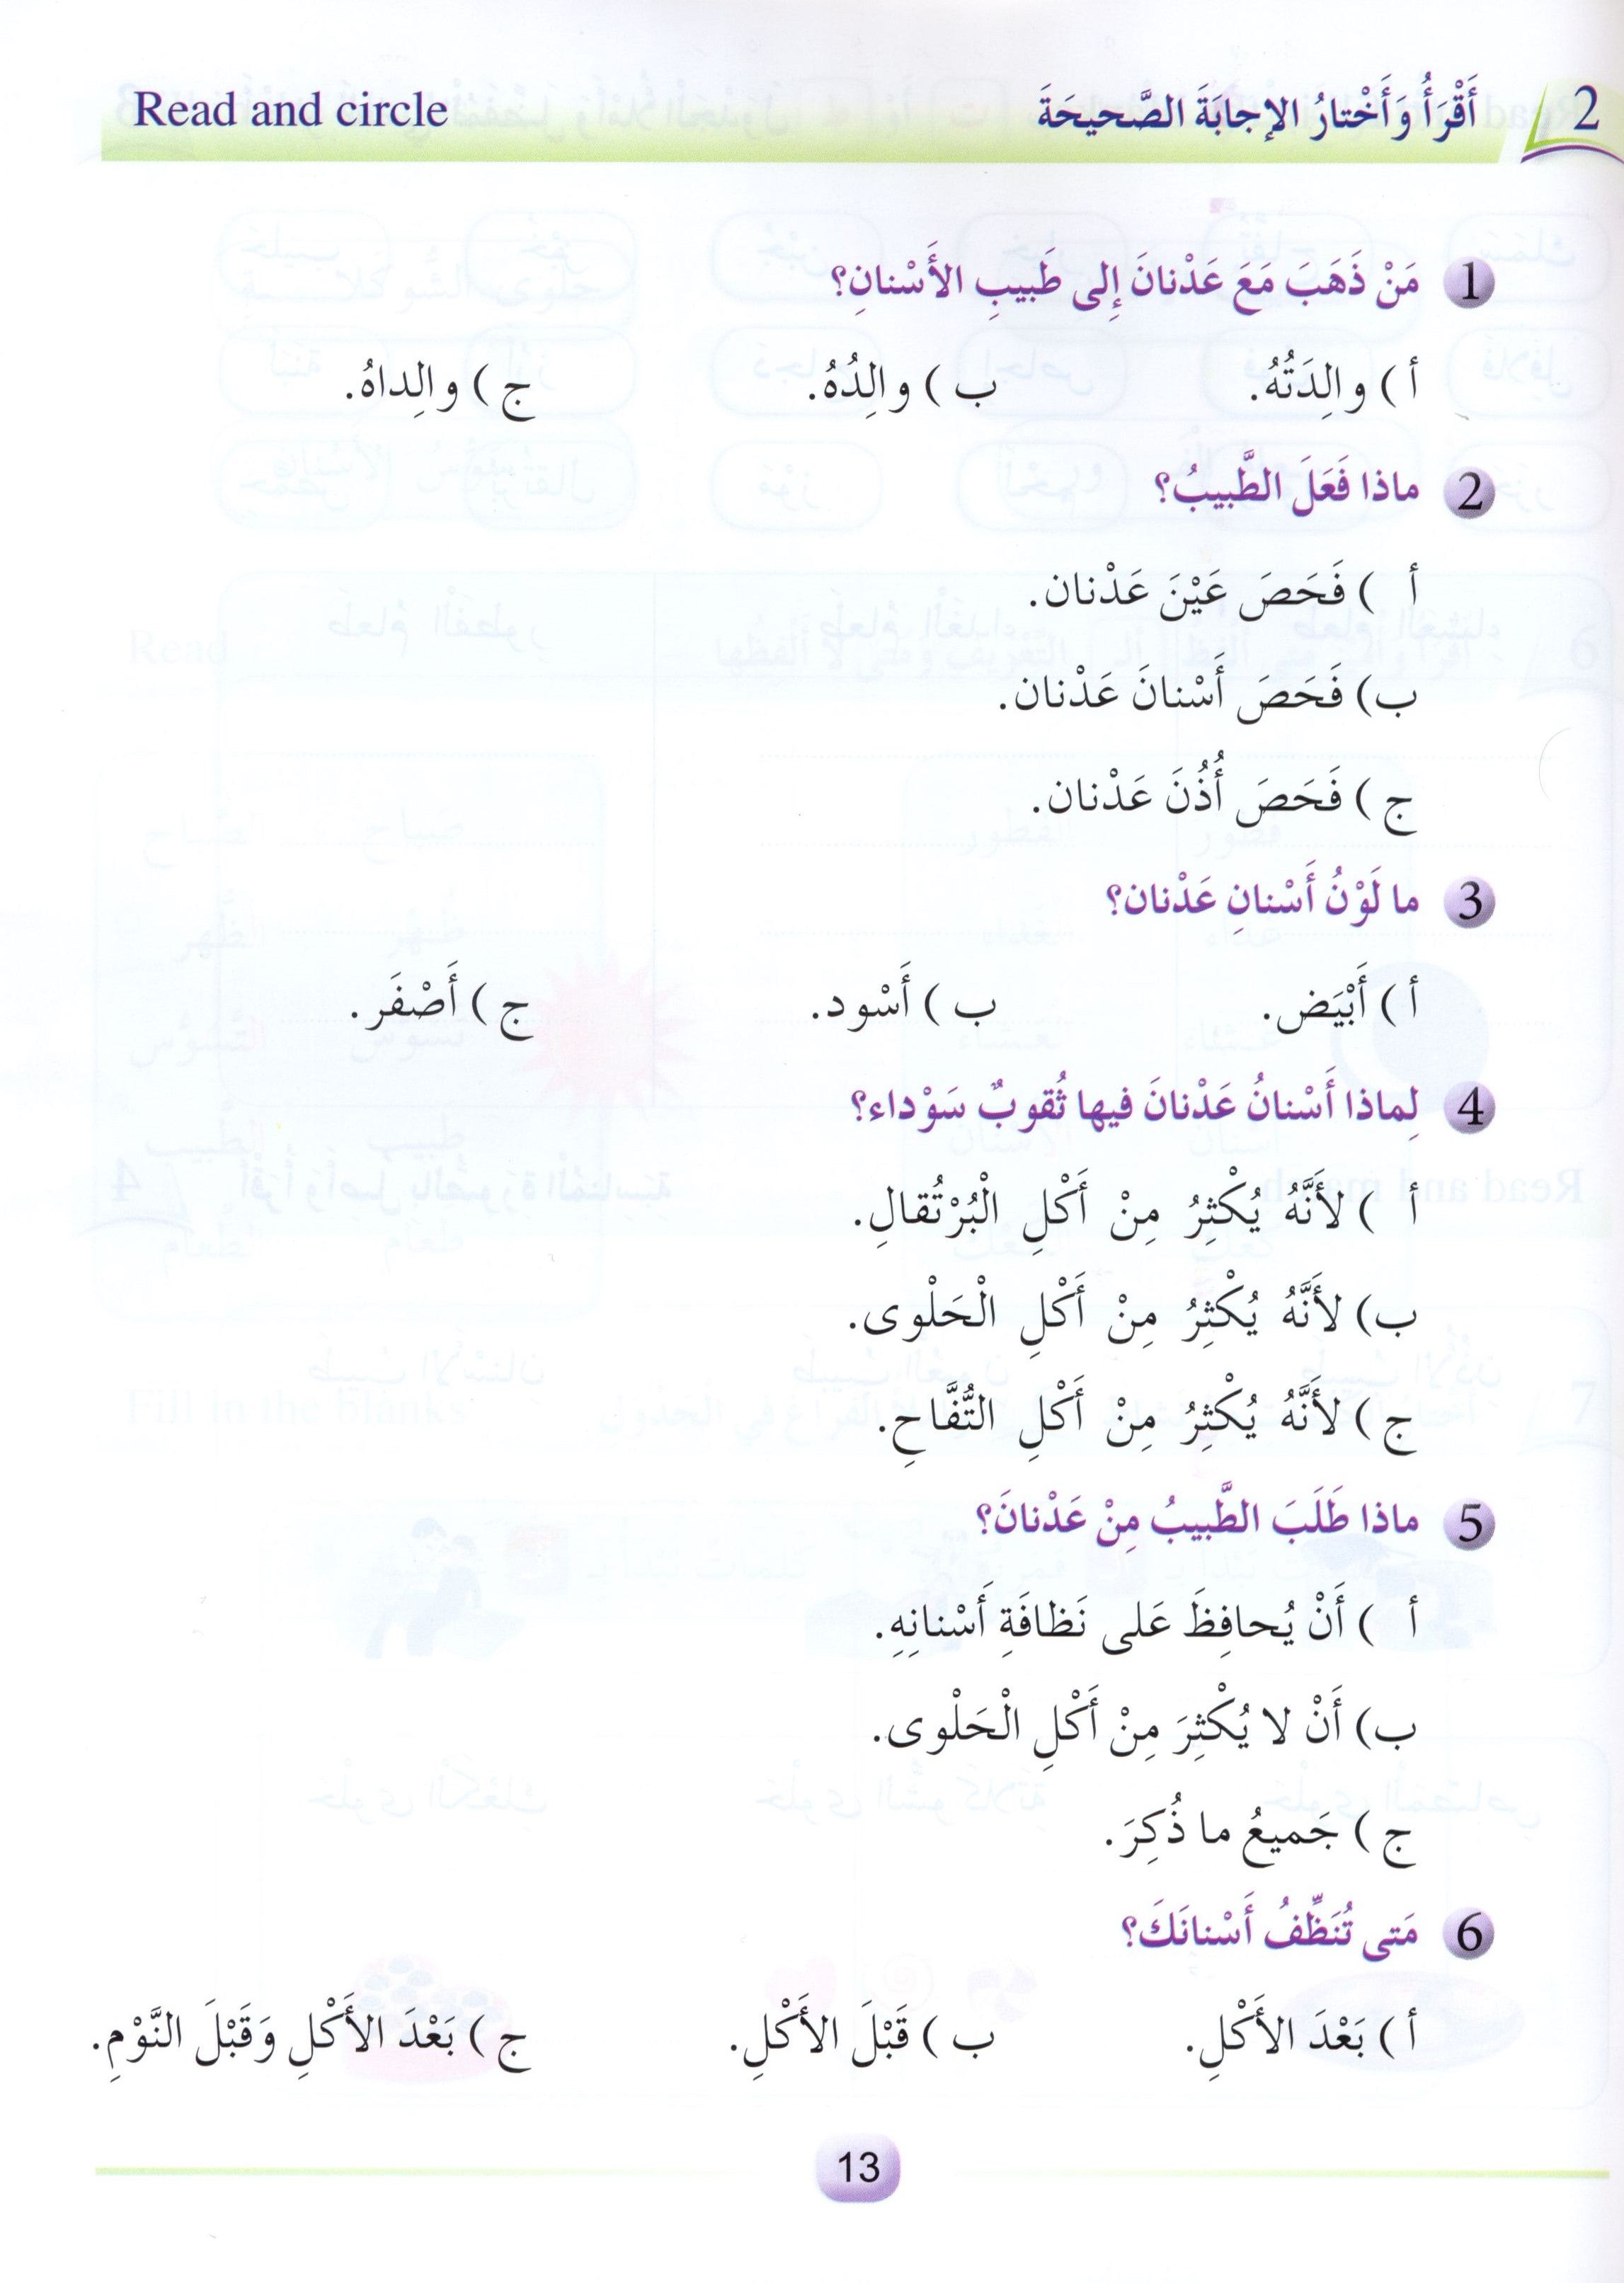 2 أَقْرَأُ وَأَخْتارُ الإجابَةَ الصَّحيحَةَ Read and circle
1 مَنْ ذَهَبَ مَعَ عَدْنانَ إِلى طَبيبِ الأَسْنانِ؟
أ ) والِدَتُهُ. ب ) والِدُهُ. ج ) والِداهُ.
2 ماذا فَعَلَ الطَّبيبُ؟
أ ) فَحَصَ عَيْنَ عَدْنان.
ب) فَحَصَ أَسْنانَ عَدْنان.
ج ) فَحَصَ أُذُنَ عَدْنان.
3 ما لَوْنُ أَسْنانِ عَدْنان؟
أ ) أَبْيَض. ب ) أَسْود. ج ) أَصْفَر.
4 لِماذا أَسْنانُ عَدْنانَ فيها ثُقوبٌ سَوْداء؟
أ ) لأَنَّهُ يُكْثِرُ مِنْ أَكْلِ الْبُرْتُقالِ.
ب) لأَنَّهُ يُكْثِرُ مِنْ أَكْلِ الْحَلْوى.
ج ) لأَنَّهُ يُكْثِرُ مِنْ أَكْلِ التُّفَّاحِ.
5 ماذا طَلَبَ الطَّبيبُ مِنْ عَدْنانَ؟
أ ) أَنْ يُحافِظَ عَلى نَظافَةِ أَسْنانِهِ.
ب) أَنْ لا يُكْثِرَ مِنْ أَكْلِ الْحَلْوى.
ج ) جَميعُ ما ذُكِرَ.
6 مَتى تُنَظِّفُ أَسْنانَكَ؟
أ ) بَعْدَ الأَكْلِ. ب ) قَبْلَ الأَكْلِ. ج ) بَعْدَ الأَكْلِ وَقَبْلَ النَّوْمِ.
13